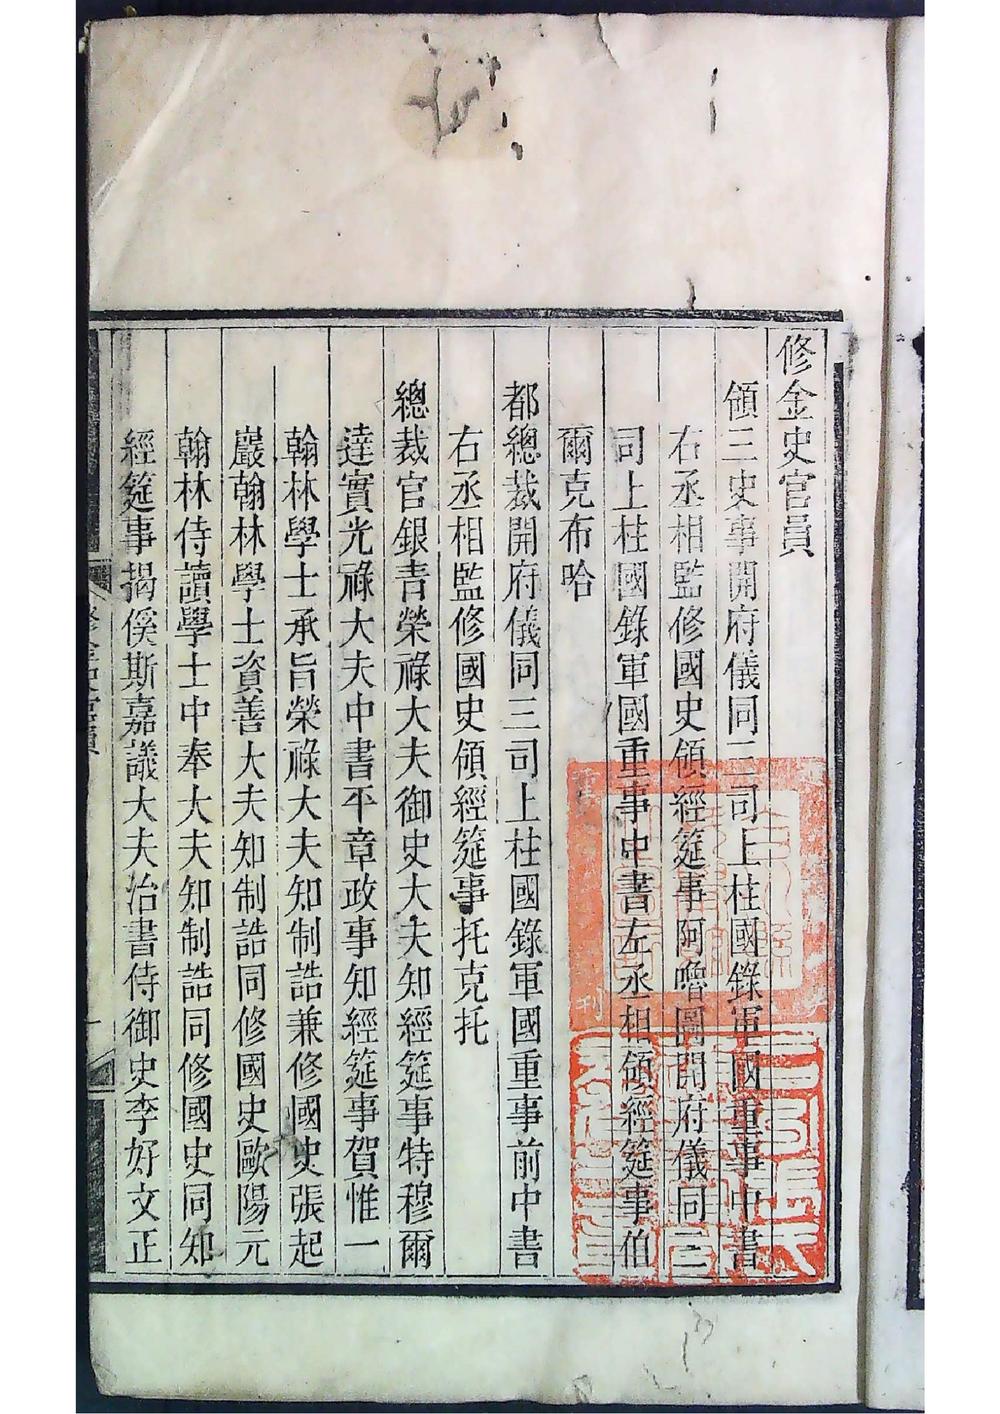 修金史官員
領三史事開府儀同三司上柱國錄軍國重事中書
右丞相監修國史領經筵事阿嚕圖開府儀同三
司上柱國錄軍國重事中書左丞相領經筵事伯
爾克布哈
都總裁開府儀同三司上柱國錄軍國重事前中書
右丞相監修國史領經筵事托克托
總裁官銀青榮祿大夫御史大夫知經筵事特穆爾
達實光祿大夫中書平章政事知經筵事賀惟一
翰林學士承旨榮祿大夫知制誥兼修國史張起
巖翰林學士資善大夫知制誥同修國史歐陽元
翰林侍讀學士中奉大夫知制誥同修國史同知
經筵事揭傒斯嘉議大夫治書侍御史李好文正